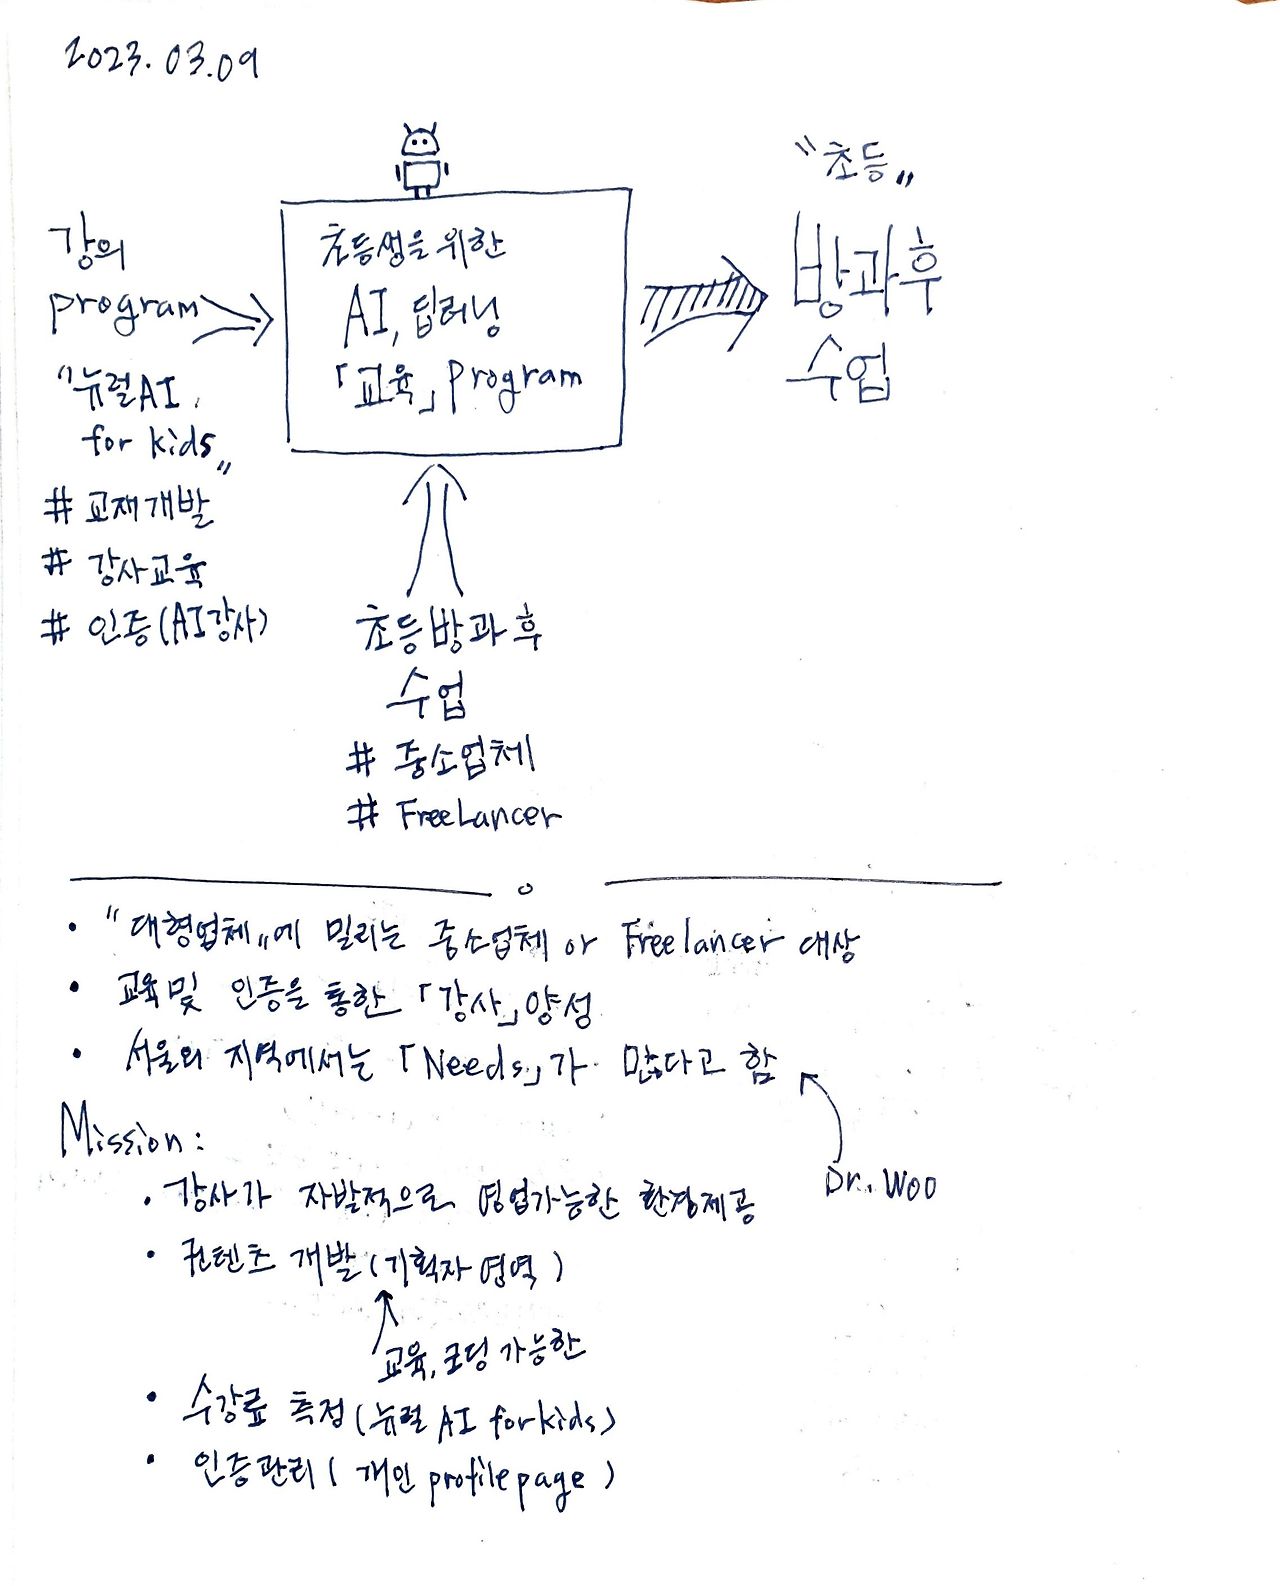 2023.03.09
강의
program
"뉴럴AI
for kids"
# 교재개발
# 강사교육
# 인증(AI강사)
초등생을 위한
AI, 딥러닝
「교육」 program
"초등"
방과후
수업
초등방과후
수업
# 중소업체
# Freelancer
• "대형업체"에 밀리는 중소업체 or Freelancer 대상
• 교육 및 인증을 통한 「강사」 양성
• 서울외 지역에서는 「Needs」가 많다고 함
Dr. Woo
Mission:
• 강사가 자발적으로 영업가능한 환경제공
• 컨텐츠 개발(기획자 영역)
교육, 코딩 가능한
• 수강료 측정(뉴럴 AI for kids)
• 인증관리( 개인 profile page )